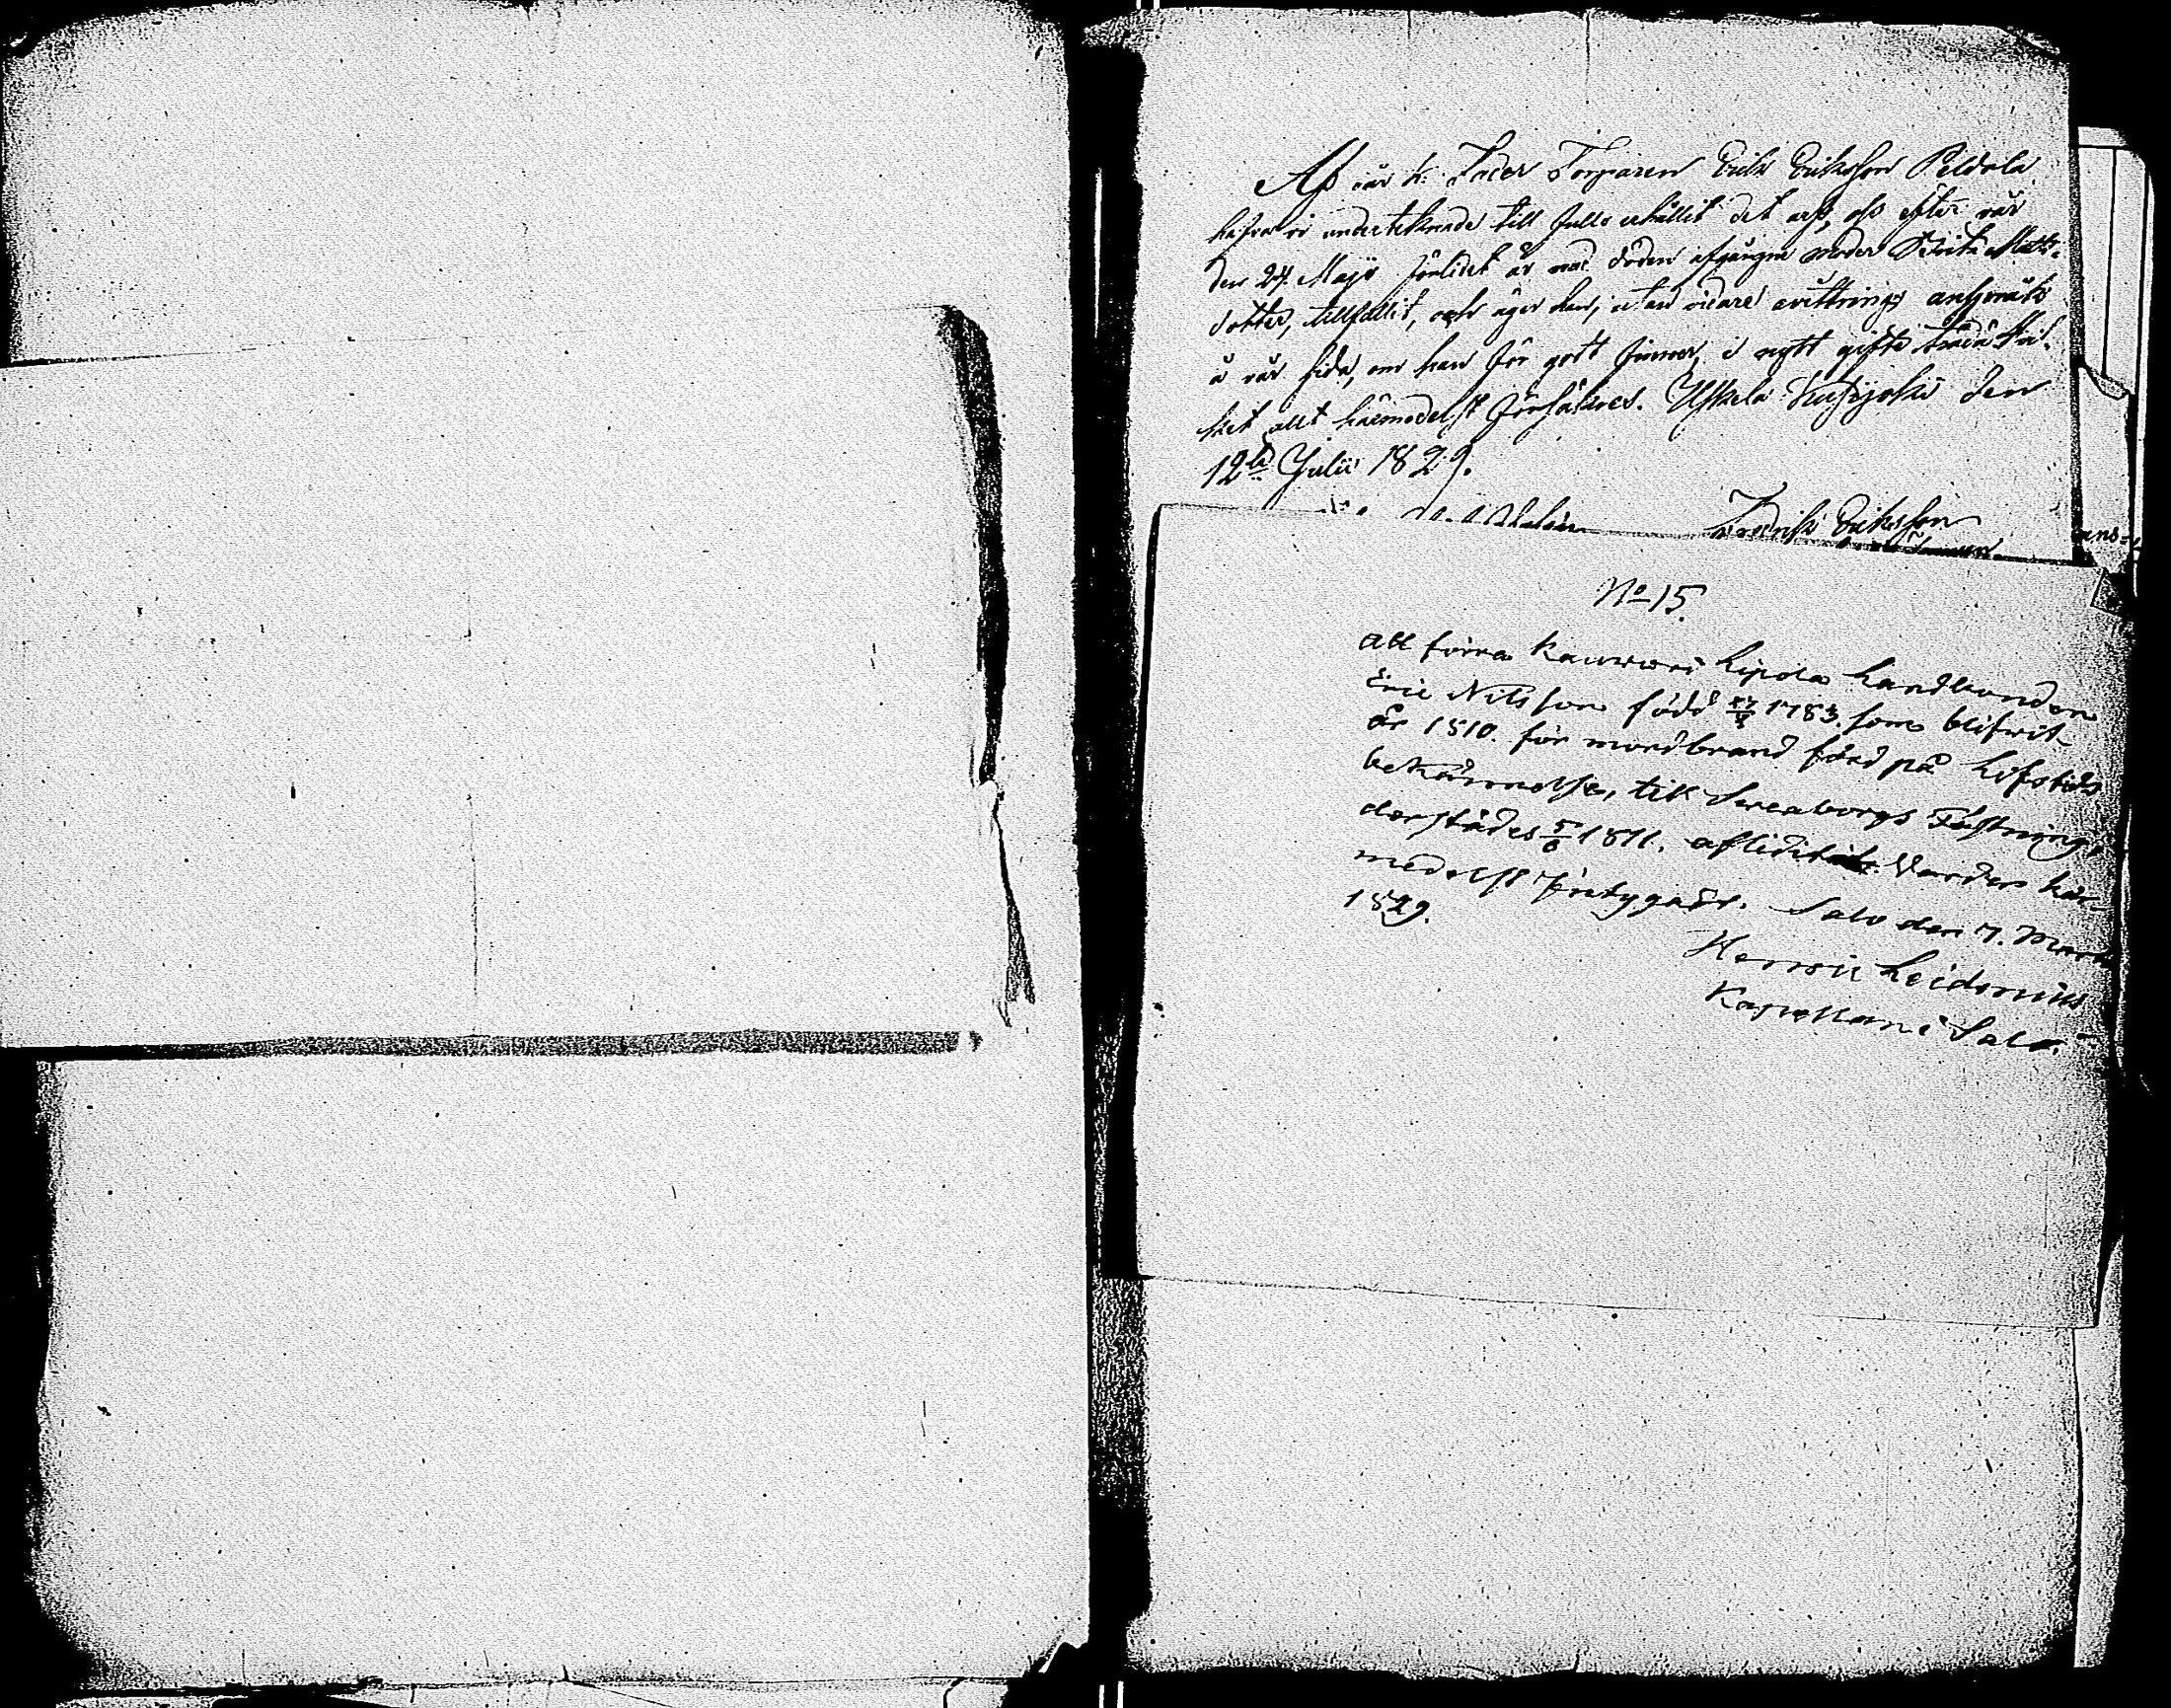 Af vår k. Fader Torparen Erik Eriksson Peldola
hafva vi undertecknade till fullo erhållit det arf, oss efter vår
den 24. Maji förlidet år med döden afgångne moder Matts-
dotter, tillfallit, och äger han, utan vidare avittrings anspråk
å vår sida, om han för godt finner, i nytt gifte träda hvil-
ket allt härmedelst försäkras. Uskela Kuskjoki den
12te Julii 1829.
Fredrik Eriksson
No 15.
Att förra Lipola Landbonden
Eric Nilsson född 1783. som blifvit
år 1810. för mordbrand förd på Lifstids
bekännelse, till Sveaborgs Fästning,
derstädes 5/6 1811. aflidit Varder här-
medelst betygadt. Salo den 7. Mars
1829.
Henric Leidenius
Kapellan i Salo.